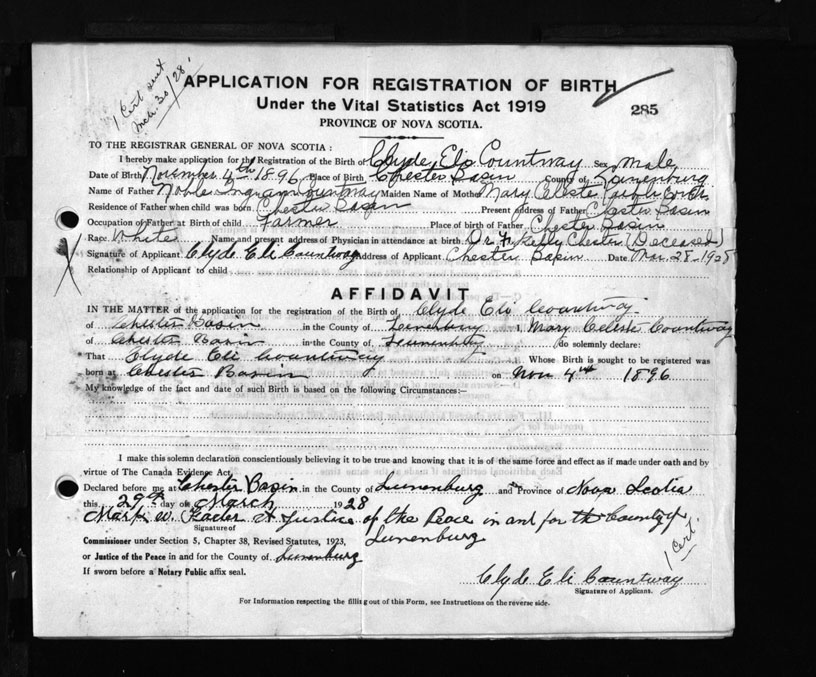 1 Cert sent
Mch. 30/28
APPLICATION FOR REGISTRATION OF BIRTH
Under the Vital Statistics Act 1919
285
PROVINCE OF NOVA SCOTIA.
TO THE REGISTRAR GENERAL OF NOVA SCOTIA :
I hereby make application for the Registration of the Birth of Clyde Eli Countway Sex Male
Date of Birth November 4th 1896 Place of Birth Chester Basin County of Lunenburg
Name of Father Noble Countway Maiden Name of Mother Mary Celeste
Residence of Father when child was born Chester Basin Present address of Father Chester Basin
Occupation of Father at Birth of child Farmer Place of birth of Father Chester Basin
Race White Name and present address of Physician in attendance at birth Dr. Kelly Chester (Deceased)
Signature of Applicant Clyde Eli Countway Address of Applicant Chester Basin Date Mar. 28-1928
Relationship of Applicant to child
AFFIDAVIT
IN THE MATTER of the application for the registration of the Birth of Clyde Eli Countway
of Chester Basin in the County of Lunenburg I, Mary Celeste Countway
of Chester Basin in the County of Lunenburg do solemnly declare:
That Clyde Eli Countway Whose Birth is sought to be registered was
born at Chester Basin on Nov 4th 1896
My knowledge of the fact and date of such Birth is based on the following Circumstances:—
I make this solemn declaration conscientiously believing it to be true and knowing that it is of the same force and effect as if made under oath and by
virtue of The Canada Evidence Act.
Declared before me at Chester Basin in the County of Lunenburg and Province of Nova Scotia
this 29th day of March 1928
W. A Justice of the Peace in and for the County of
Lunenburg
Signature of
Commissioner under Section 5, Chapter 38, Revised Statutes, 1923,
or Justice of the Peace in and for the County of Lunenburg
If sworn before a Notary Public affix seal.
1 Cert
Clyde Eli Countway
Signature of Applicants.
For Information respecting the filling out of this Form, see Instructions on the reverse side.